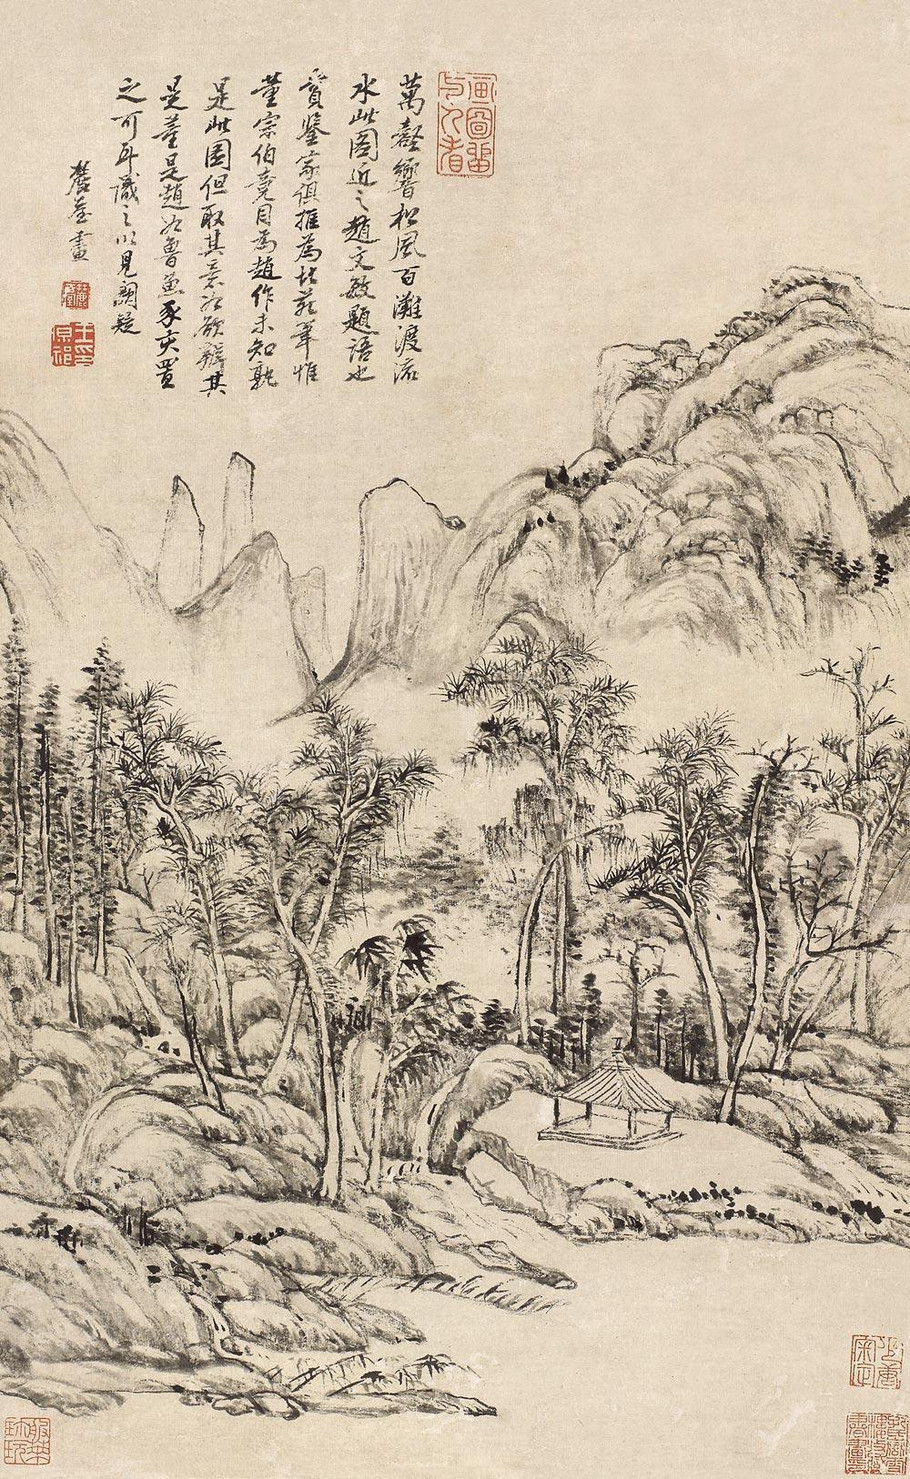 画圖留與人看
萬壑響松風百灘渡流
水此圖近之趙文敏題語也
賞鑒家俱推為北苑筆惟
董宗伯竟目為趙作未知孰
是此圖但取其意如欲辨其
是董是趙如魯魚豕亥置
之可耳識之以見闕疑
麓臺畫
麓臺
王原祁印